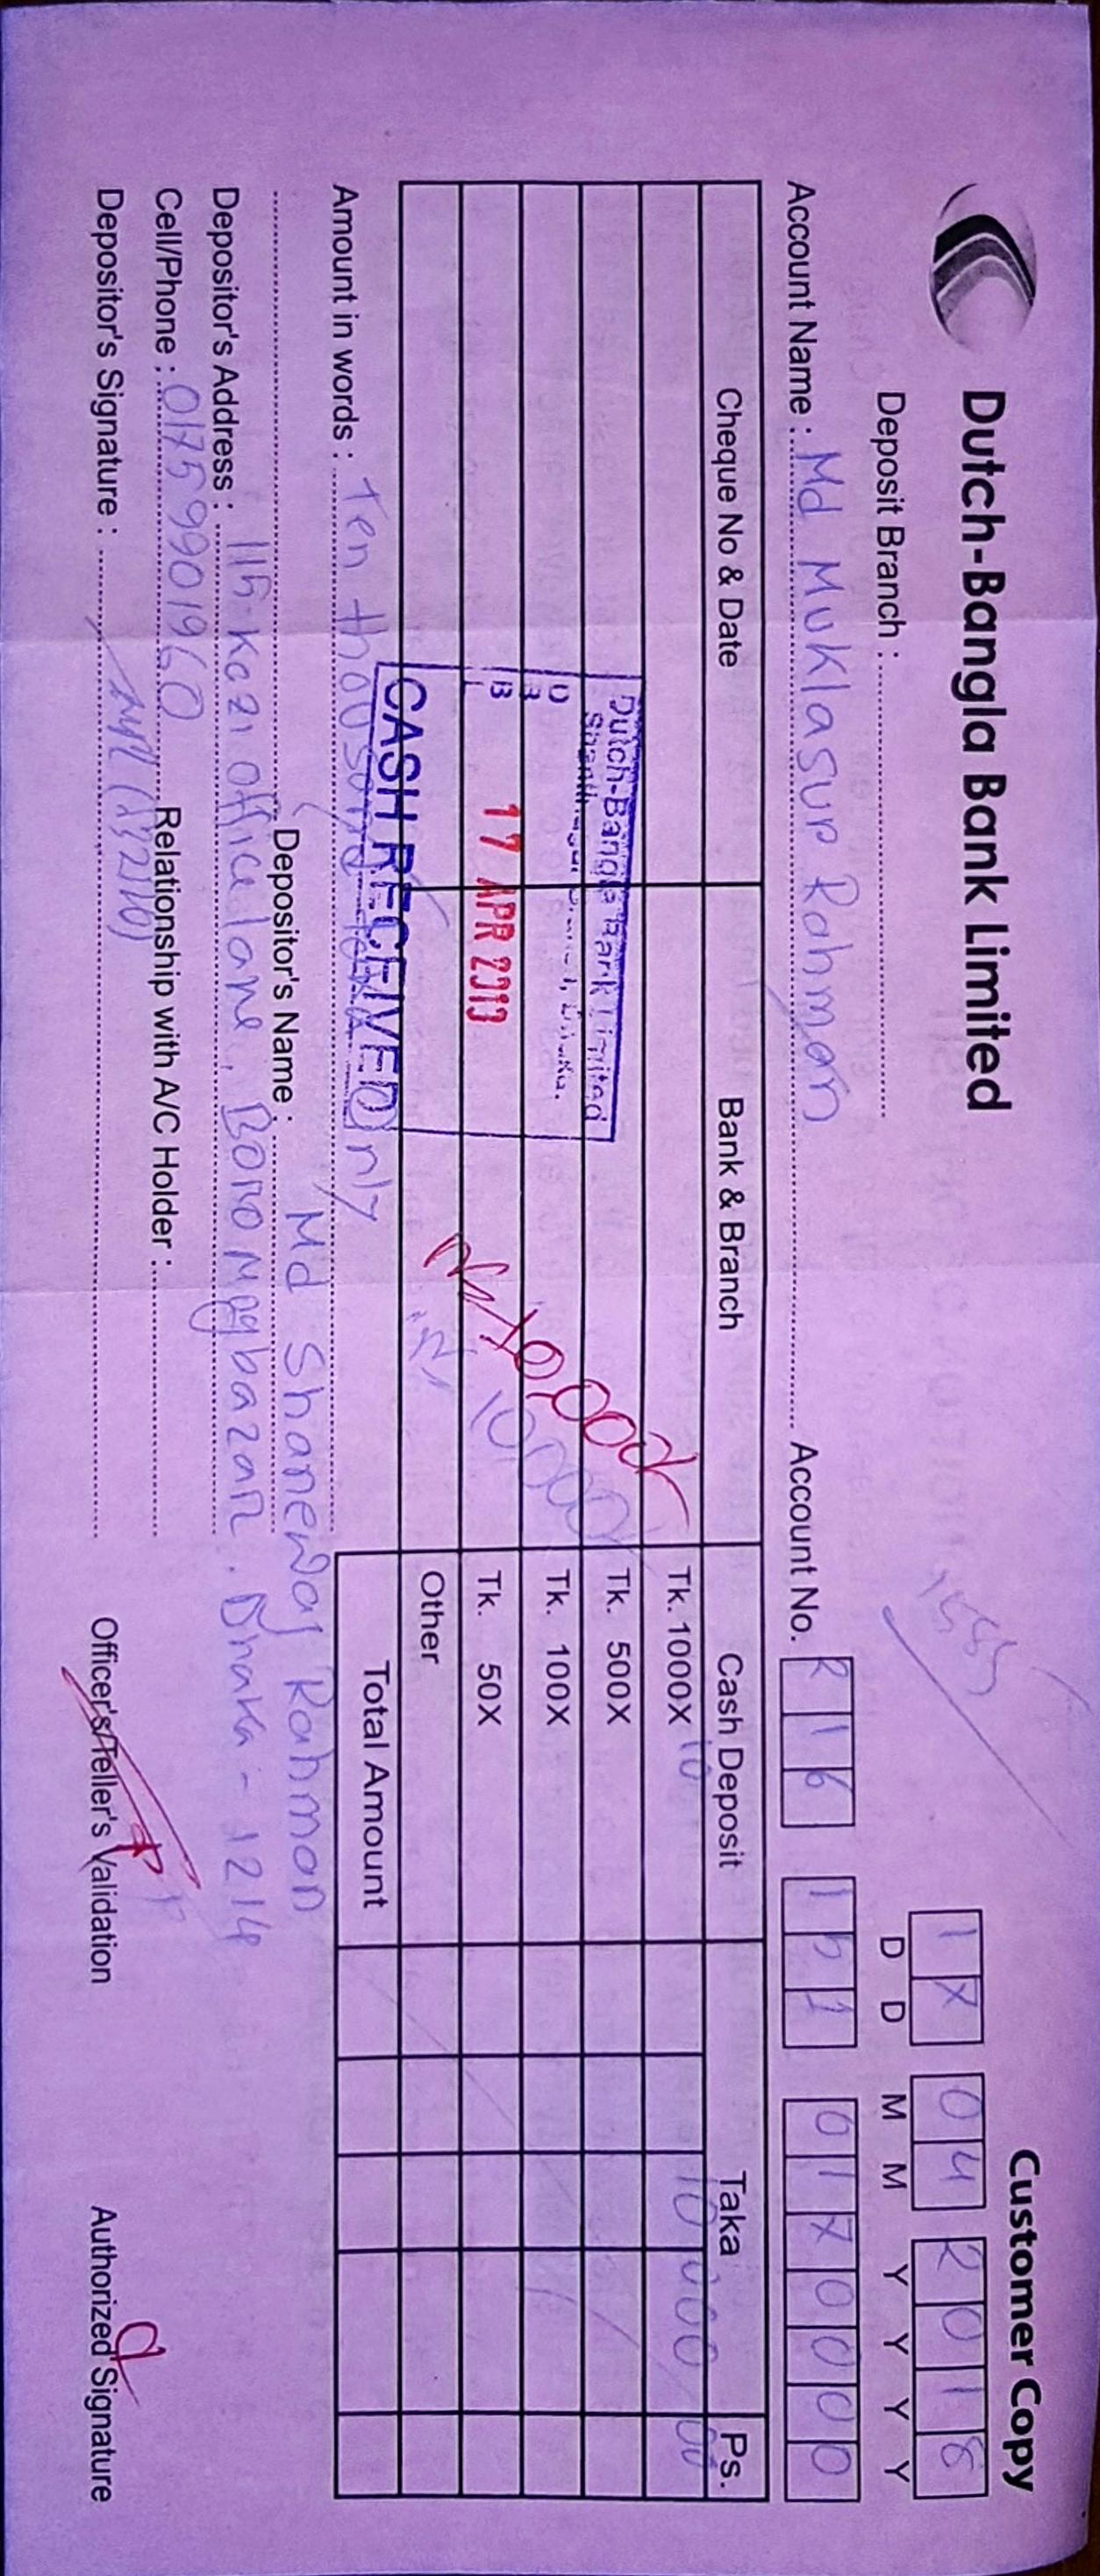 Dutch-Bangla Bank Limited
Customer Copy
Deposit Branch :
17 04 2018
D D M M Y Y Y Y
Account Name : Md Muklasur Rahman Account No. 216 151 0170000
Cheque No & Date Bank & Branch Cash Deposit Taka Ps.
Tk. 1000X 10 10 000 00
Tk. 500X
Tk. 100X
Tk. 50X
Other
Total Amount
10,000/
10000/
Dutch-Bangla Bank Limited
D
B
B
L
17 APR 2018
CASH RECEIVED
Amount in words : Ten thousand only
Depositor's Name : Md Shanewaj Rahman
Depositor's Address : office lane, Boro Mogbazar, Dhaka-1214
Cell/Phone : 01759901960 Relationship with A/C Holder :
Depositor's Signature :
Officer's/Teller's Validation Authorized Signature